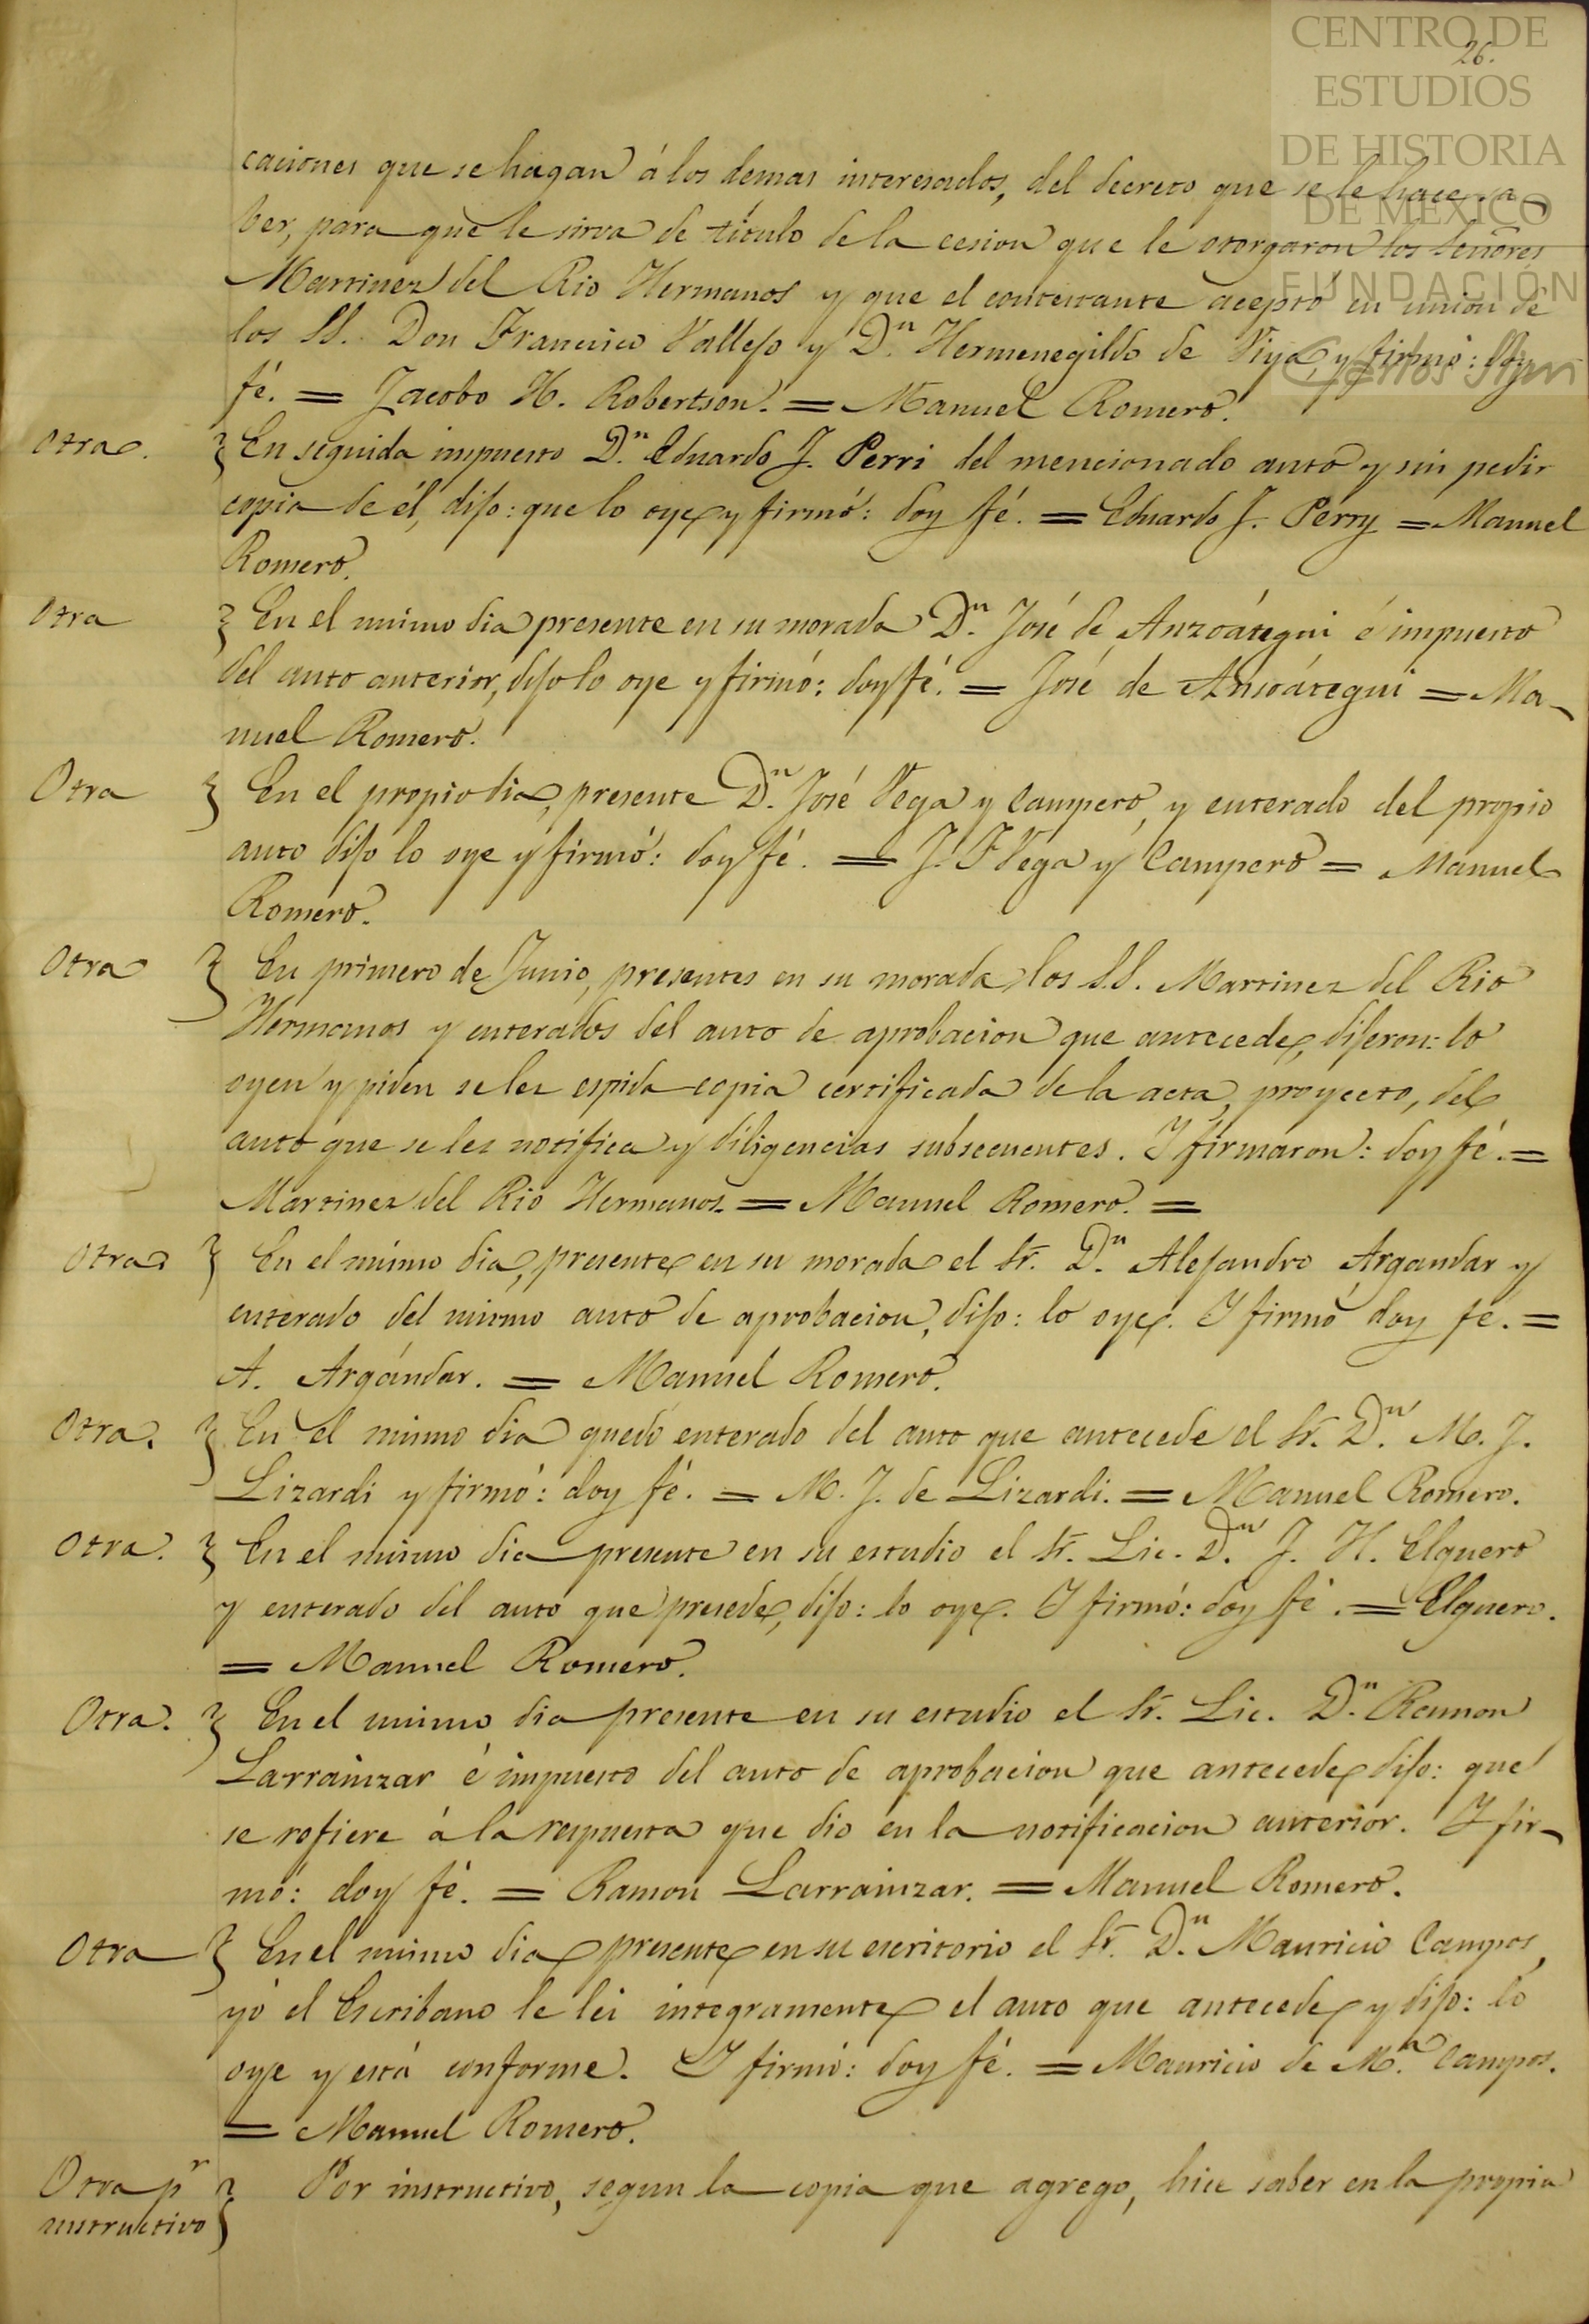 CENTRO DE
26.
ESTUDIOS
DE HISTORIA
DE MÉXICO
FUNDACIÓN
caciones que se hagan á los demas interesados, del decreto que se le hace sa-
ber, para que le sirva de título de la cesion que le otorgaron los Señores
Martinez del Rio Hermanos y que el contestante aceptó en union de
los SS. Don Francisco Vallejo y Dn. Hermenegildo de Viya, y firmó: doy
fé. = Jacobo H. Robertson. = Manuel Romero.
Otra. } En seguida impuesto Dn. Eduardo J. Perri del mencionado auto y sin pedir
copia de él, dijo: que lo oye y firmó: doy fé. = Eduardo J. Perry = Manuel
Romero.
Otra } En el mismo dia presente en su morada Dn. José de Anzoátegui é impuesto
del auto anterior, dijo lo oye y firmó: doy fé. = José de Ansoátegui = Ma-
nuel Romero.
Otra } En el propio dia, presente Dn. José Vega y Campero, y enterado del propio
auto dijo lo oye y firmó: doy fé. = J. F. Vega y Campero = Manuel
Romero.
Otra } En primero de Junio, presentes en su morada los S.S. Martinez del Rio
Hermanos y enterados del auto de aprobacion que antecede, dijeron: lo
oyen y piden se les espida copia certificada de la acta, proyecto, del
auto que se les notifica y diligencias subsecuentes. Y firmaron: doy fé. =
Martinez del Rio Hermanos. = Manuel Romero. =
Otra } En el mismo dia, presente en su morada el Sr. Dn. Alejandro Argandar y
enterado del mismo auto de aprobacion, dijo: lo oye. Y firmó doy fé. =
A. Argándar. = Manuel Romero.
Otra. } En el mismo dia quedó enterado del auto que antecede el Sr. Dn. M. J.
Lizardi y firmó: doy fé. = M. J. de Lizardi. = Manuel Romero.
Otra. } En el mismo dia presente en su estudio el Sr. Lic. Dn. J. H. Elguero
y enterado del auto que presede, dijo: lo oye. Y firmó: doy fé. = Elguero.
= Manuel Romero.
Otra. } En el mismo dia presente en su estudio el Sr. Lic. Dn. Ramon
Larrainzar é impuesto del auto de aprobacion que antecede dijo: que
se refiere á la respuesta que dio en la notificacion anterior. Y fir-
mó: doy fé. = Ramon Larrainzar. = Manuel Romero.
Otra } En el mismo dia presente en su escritorio el Sr. Dn. Mauricio Campos,
yó el Escribano le lei integramente el auto que antecede y dijo: lo
oye y está conforme. Y firmó: doy fé. = Mauricio de Ma. Campos.
= Manuel Romero.
Otra pr } Por instructivo, segun la copia que agrego, hice saber en la propia
instructivo